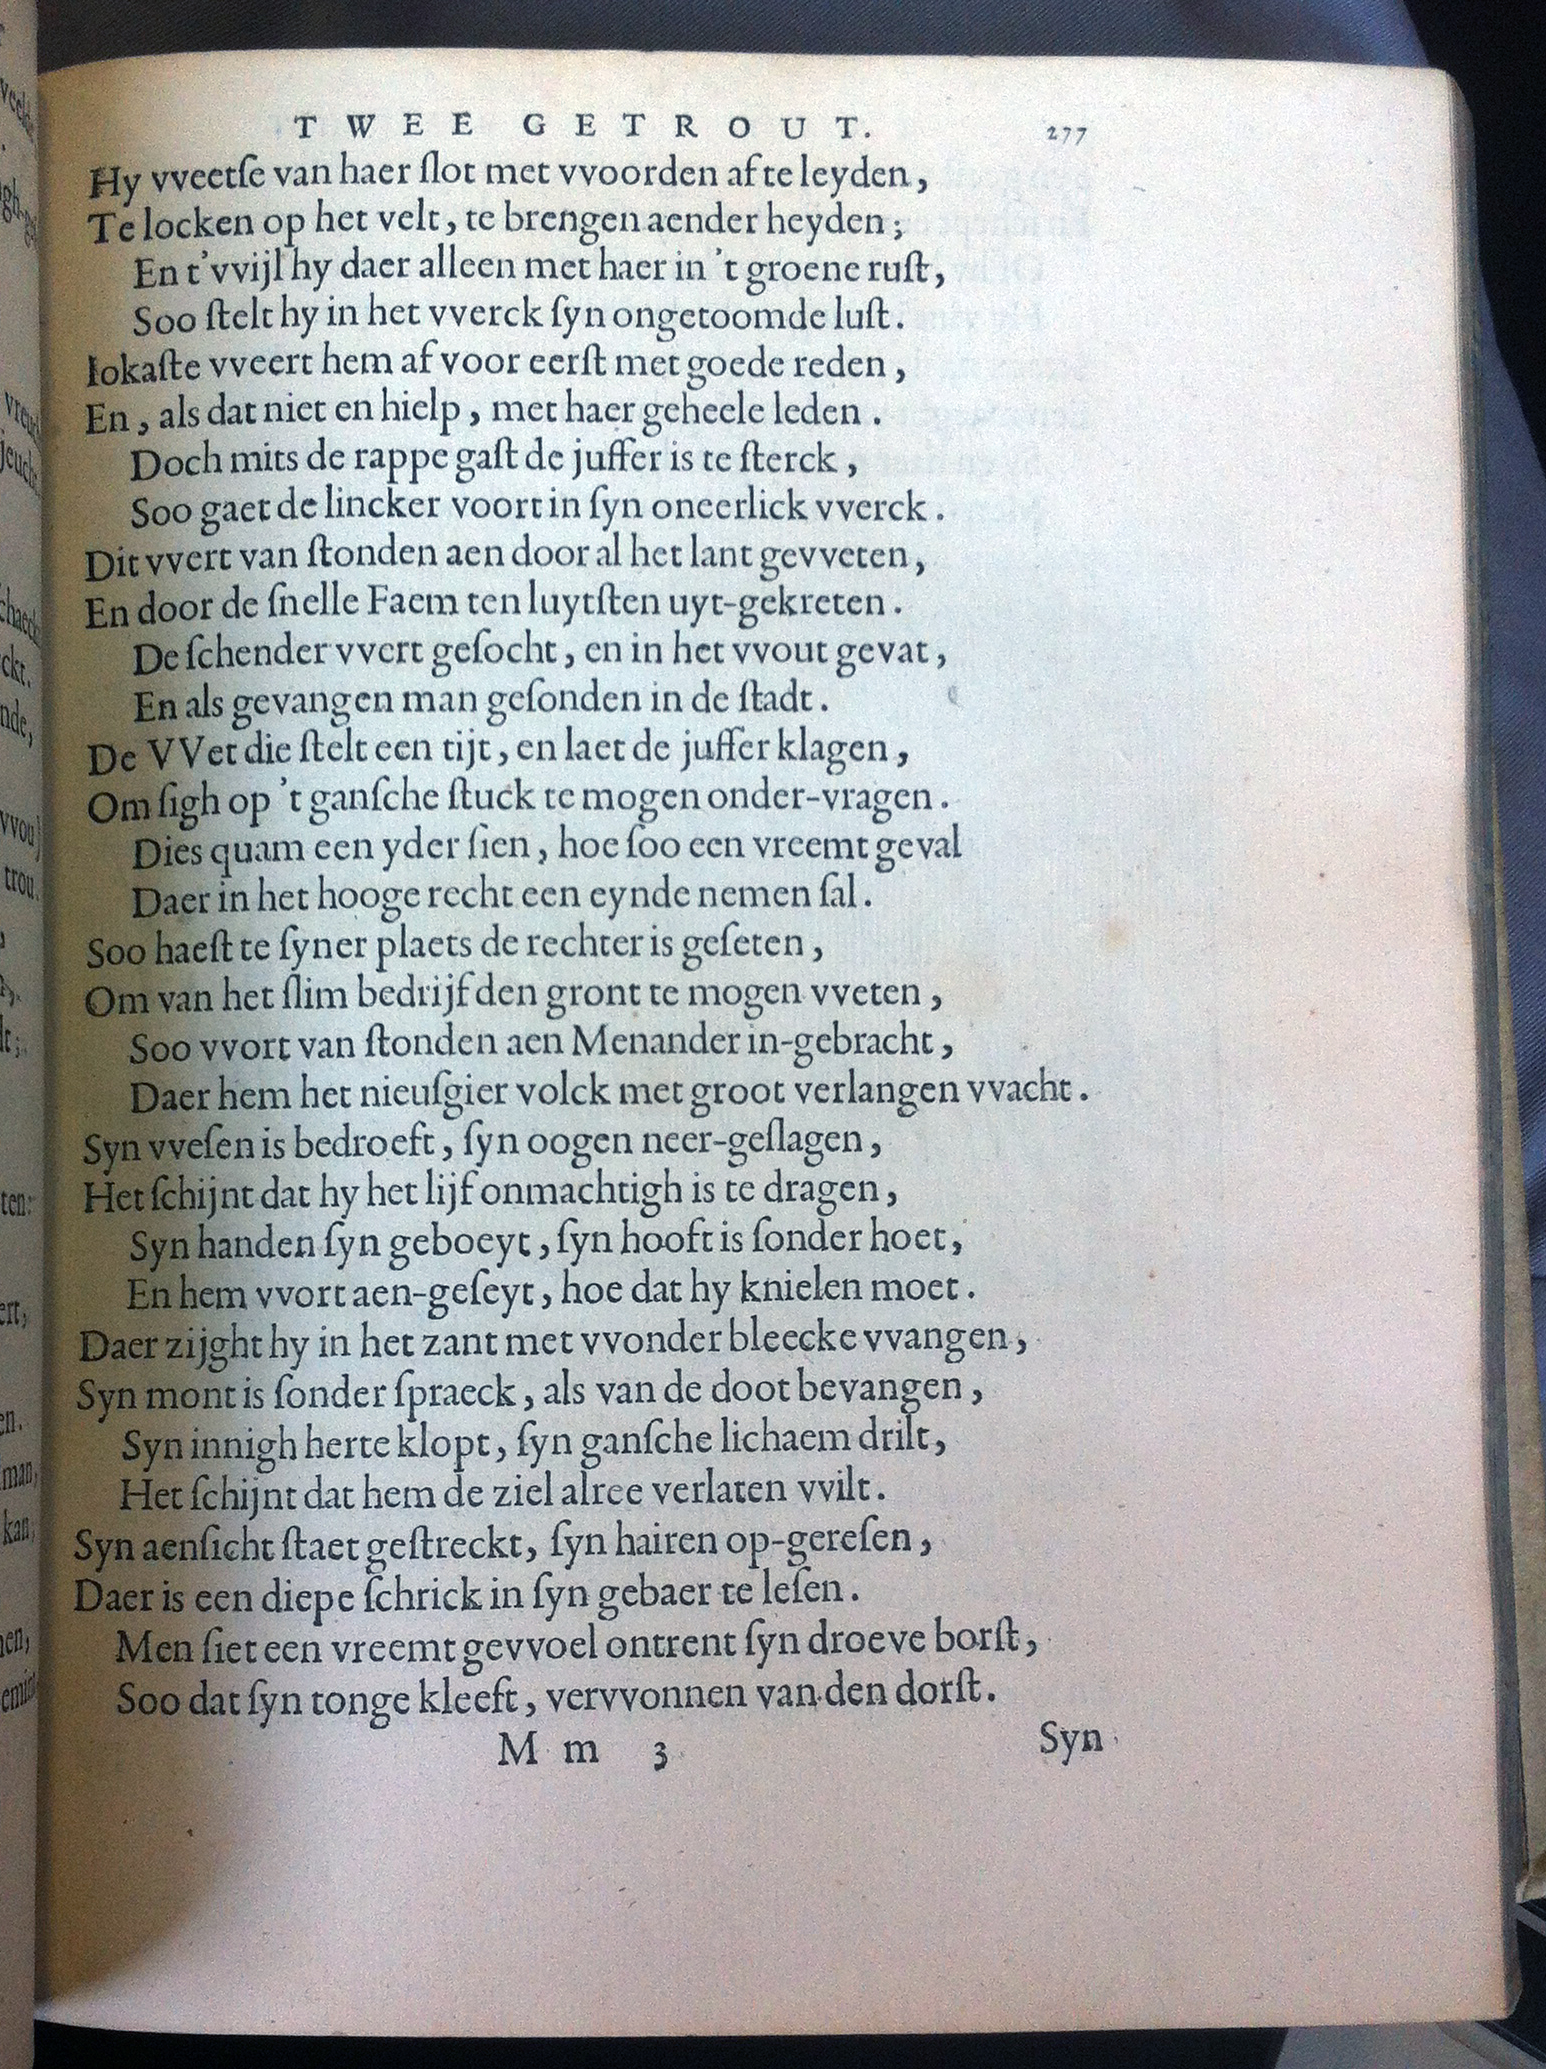 TWEE GETROUT. 277
Hy vveetſe van haer ſlot met vvoorden af te leyden,
Te locken op het velt, te brengen aender heyden;
En t'vvijl hy daer alleen met haer in 't groene ruſt,
Soo ſtelt hy in het vverck ſyn ongetoomde luſt.
Iokaſte vveert hem af voor eerſt met goede reden,
En, als dat niet en hielp, met haer geheele leden.
Doch mits de rappe gaſt de juffer is te ſterck,
Soo gaet de lincker voort in ſyn oneerlick vverck.
Dit vvert van ſtonden aen door al het lant gevveten,
En door de ſnelle Faem ten luytſten uyt-gekreten.
De ſchender vvert geſocht, en in het vvout gevat,
En als gevangen man geſonden in de ſtadt.
De VVet die ſtelt een tijt, en laet de juffer klagen,
Om ſigh op 't ganſche ſtuck te mogen onder-vragen.
Dies quam een yder ſien, hoe ſoo een vreemt geval
Daer in het hooge recht een eynde nemen ſal.
Soo haeſt te ſyner plaets de rechter is geſeten,
Om van het ſlim bedrijf den gront te mogen vveten,
Soo vvort van ſtonden aen Menander in-gebracht,
Daer hem het nieuſgier volck met groot verlangen vvacht.
Syn vveſen is bedroeft, ſyn oogen neer-geſlagen,
Het ſchijnt dat hy het lijf onmachtigh is te dragen,
Syn handen ſyn geboeyt, ſyn hooft is ſonder hoet,
En hem vvort aen-geſeyt, hoe dat hy knielen moet.
Daer zijght hy in het zant met vvonder bleecke vvangen,
Syn mont is ſonder ſpraeck, als van de doot bevangen,
Syn innigh herte klopt, ſyn ganſche lichaem drilt,
Het ſchijnt dat hem de ziel alree verlaten vvilt.
Syn aenſicht ſtaet geſtreckt, ſyn hairen op-gereſen,
Daer is een diepe ſchrick in ſyn gebaer te leſen.
Men ſiet een vreemt gevvoel ontrent ſyn droeve borſt,
Soo dat ſyn tonge kleeft, vervvonnen van den dorſt.
Mm 3 Syn